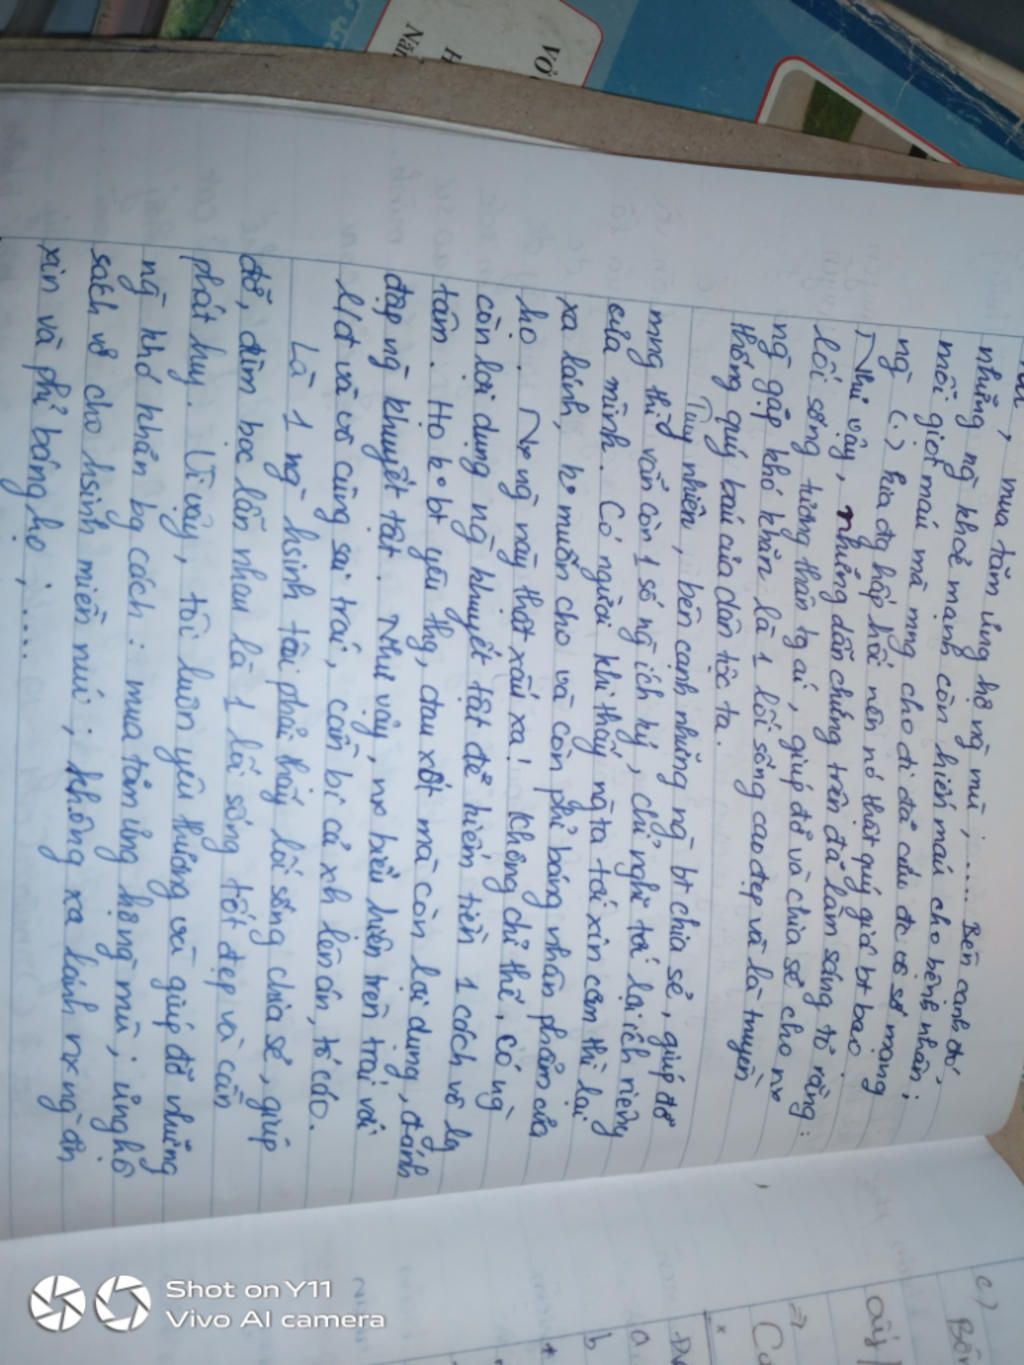 , mua tăm ủng hộ ng̀ mù ; ..... Bên cạnh đó,
những ng̀ khoẻ mạnh còn hiến máu cho bệnh nhân ;
mỗi giọt máu mà mng cho đi đã cứu đc vô số mạng
ng̀ (.) hịa đg hấp hối nên nó thật quý giá bt bao
Như vậy, những dẫn chứng trên đã làm sáng tỏ rằng :
lối sống tương thân tg ái, giúp đỡ và chia sẻ cho nx
ng̀ gặp khó khăn là 1 lối sống cao đẹp và là truyền
thống quý báu của dân tộc ta.
Tuy nhiên, bên cạnh những ng̀ bt chia sẻ, giúp đỡ
mng thì vẫn còn 1 số ng̀ ích kỷ, chỉ nghĩ tới lợi ích riêng
của mình. Có người khi thấy ng̀ ta tới xin cơm thì lại
xa lánh, ko muốn cho và còn phỉ báng nhân phẩm của
họ. Nx ng̀ này thật xấu xa! Không chỉ thế, có ng̀
còn lợi dụng ng̀ khuyết tật để kiếm tiền 1 cách vô lg
tâm. Họ ko bt yêu thg, đau xót mà còn lợi dụng, đánh
đập ng̀ khuyết tật. Như vậy, nx biểu hiện trên trái với
l/đ và vô cùng sai trái, cần bị cả xh lên án, tố cáo.
Là 1 ng̀ hsinh tôi phải thấy lối sống chia sẻ, giúp
đỡ, đùm bọc lẫn nhau là 1 lối sống tốt đẹp và cần
phát huy. Vì vậy, tôi luôn yêu thương và giúp đỡ những
ng̀ khó khăn bg cách : mua tăm ủng hộ ng̀ mù ; ủng hộ
sách vở cho hsinh miền núi ; không xa lánh nx ng̀ ăn
xin và phỉ báng họ ; ....
Shot on Y11
Vivo AI camera